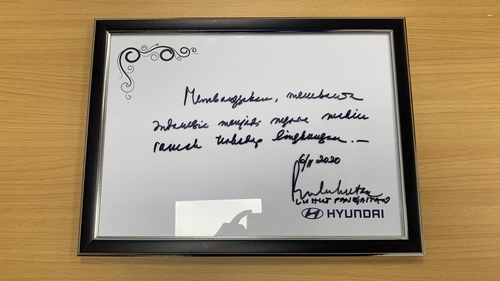 Membanggakan, membawa
Indonesia menjadi negara makin
ramah terhadap lingkungan. —
6/11 2020
LUHUT PANDJAITAN
HYUNDAI